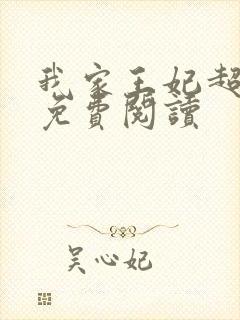 我家王妃超
免費閱讀
吴心妃